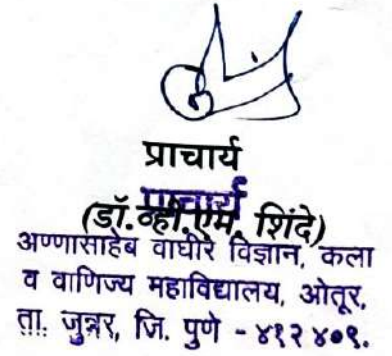 प्राचार्य
प्राचार्य
(डॉ.व्ही.एम. शिंदे)
अण्णासाहेब वाघीरे विज्ञान, कला
व वाणिज्य महाविद्यालय, ओतूर,
ता. जुन्नर, जि. पुणे - ४१२ ४०९.